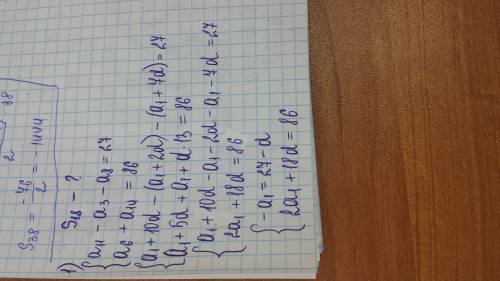 2 · 38
S₃₈ = -76/2 = -1444
1) S₁₈ - ?
{ a₁₁ - a₃ - a₈ = 27
{ a₆ + a₁₄ = 86
{ a₁ + 10d - (a₁ + 2d) - (a₁ + 7d) = 27
{ a₁ + 5d + a₁ + d · 13 = 86
{ a₁ + 10d - a₁ - 2d - a₁ - 7d = 27
{ 2a₁ + 18d = 86
{ -a₁ = 27 - d
{ 2a₁ + 18d = 86